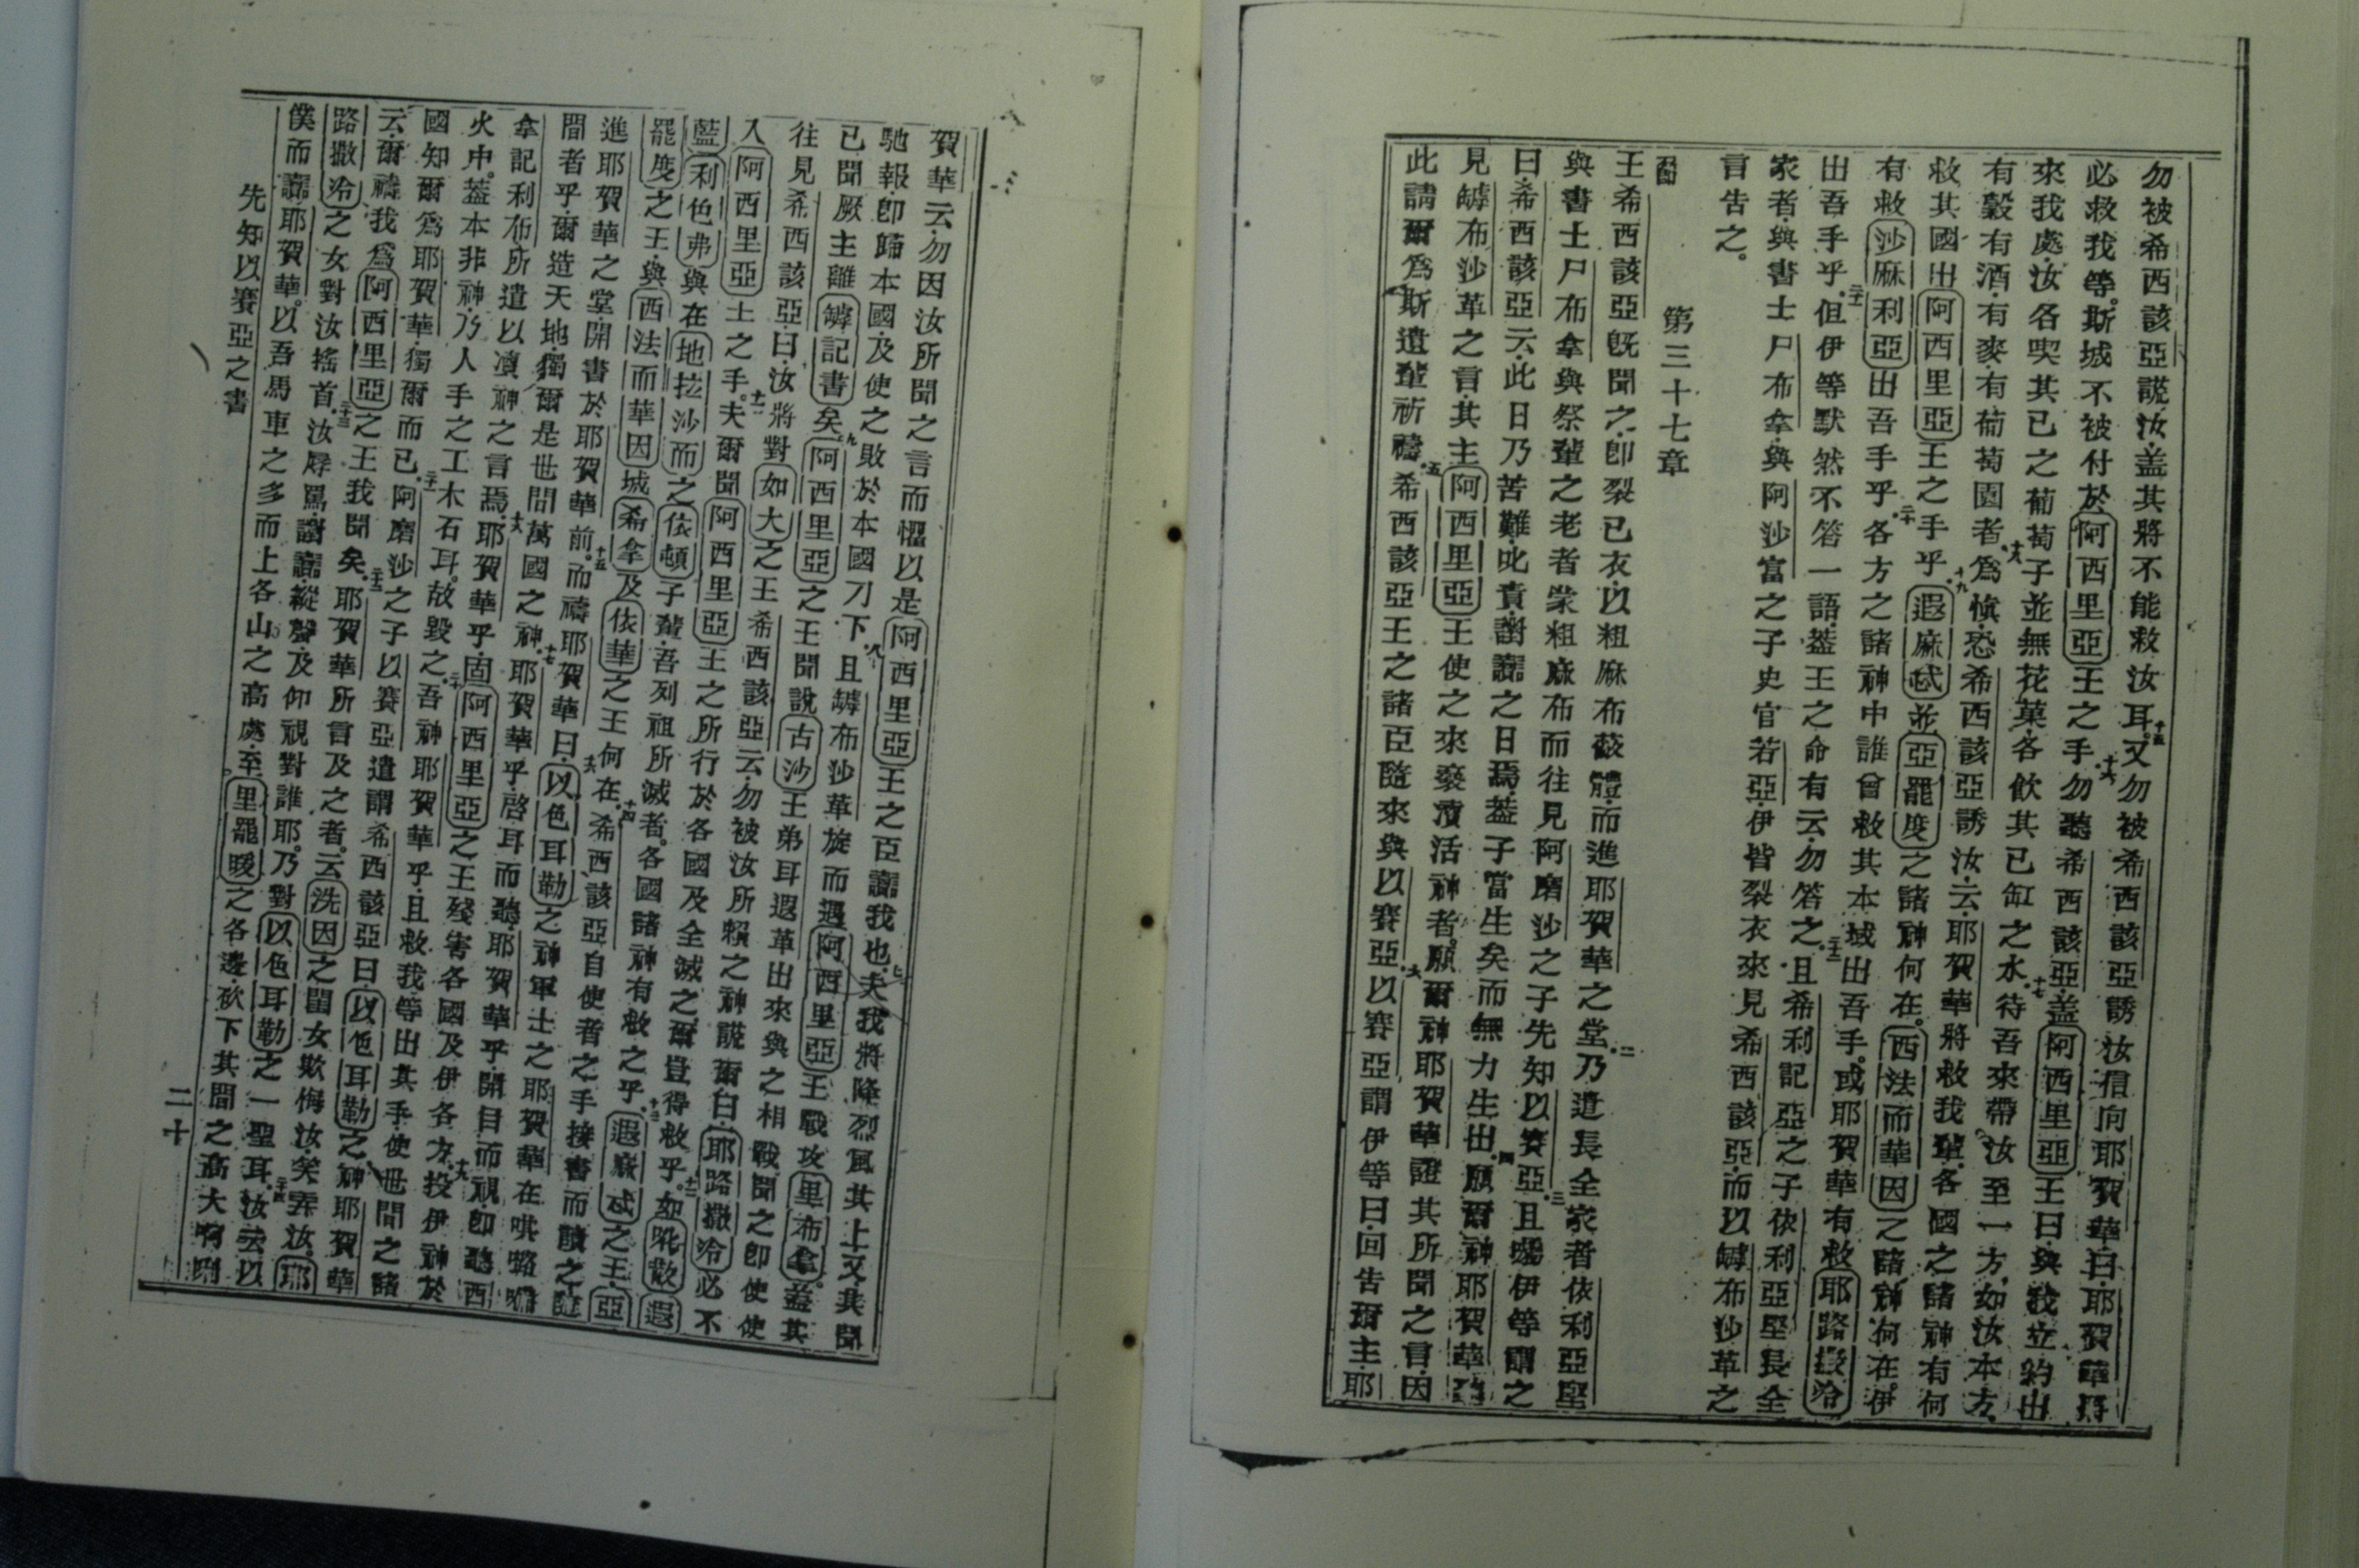 勿被希西該亞説汝盖其將不能救汝耳十五又勿被希西該亞誘汝信向耶賀華曰耶賀華將
必救我等斯城不被付於阿西里亞王之手十六勿聽希西該亞盖阿西里亞王曰與我立約出
來我處汝各喫其已之葡萄子並無花菓各飲其已缸之水十七待吾來帶汝至一方如汝本方
有穀有酒有麥有葡萄園者十八爲愼恐希西該亞誘汝云耶賀華將救我輩各國之諸神有何
救其國出阿西里亞王之手乎十九遐麻忒並亞罷度之諸神何在西法而華因之諸神何在伊
有救沙麻利亞出吾手乎二十各方之諸神中誰曾救其本城出吾手或耶賀華有救耶路撒冷
出吾手乎二十一但伊等默然不答一語葢王之命有云勿答之二十二且希利記亞之子依利亞堅長全
家者與書士尸布拿與阿沙富之子史官若亞伊皆裂衣來見希西該亞而以罅布沙革之
言告之
第三十七章
王希西該亞旣聞之卽裂己衣以粗麻布蔽體而進耶賀華之堂二乃遣長全家者依利亞堅
與書士尸布拿與祭輩之老者蒙粗麻布而往見阿磨沙之子先知以賽亞三且囑伊等謂之
曰希西該亞云此日乃苦難叱責謝讟之日焉葢子當生矣而無力生出四願爾神耶賀華
見罅布沙革之言其主阿西里亞王使之來褻瀆活神者願爾神耶賀華證其所聞之言因
此請爾爲斯遺輩祈禱五希西該亞王之諸臣隨來與以賽亞六以賽亞謂伊等曰回告爾主耶
賀華云勿因汝所聞之言而懼以是阿西里亞王之臣讟我也七夫我將降烈風其上又其聞
馳報卽歸本國及使之敗於本國刀下八且罅布沙革旋而遇阿西里亞王戰攻里布拿葢其
已聞厥主離罅記書矣九阿西里亞之王聞說古沙王弟耳遐革出來與之相戰聞之卽使使
往見希西該亞曰汝將對如大之王希西該亞云勿被汝所賴之神說爾白耶路撒冷必不
入阿西里亞王之手十一夫爾聞阿西里亞王之所行於各國及全滅之爾豈得救乎十二如吪散遐
藍利色弗與在地拉沙而之依頓子輩吾列祖所滅者各國諸神有救之乎十三遐麻忒之王亞
罷度之王與西法而華因城希拿及依華之王何在十四希西該亞自使者之手接書而讀之隨
進耶賀華之堂開書於耶賀華前十五而禱耶賀華曰十六以色耳勒之神軍士之耶賀華在𠵽𡀔𠼤
間者乎爾造天地獨爾是世間萬國之神十七耶賀華乎啓耳而聽耶賀華乎開目而視卽聽西
拿記利布所遣以凟神之言焉十八耶賀華乎固阿西里亞之王殘害各國及伊各方十九投伊神於
火中葢本非神乃人手之工木石耳故毀之二十吾神耶賀華乎且救我等出其手使世間之諸
國知爾爲耶賀華獨爾而已二十一阿磨沙之子以賽亞遣謂希西該亞曰以色耳勒之神耶賀華
云爾禱我爲阿西里亞之王我聞矣二十二耶賀華所言及之者云洗因之閨女欺侮汝笑弄汝耶
路撒冷之女對汝搖首二十三汝辱罵謝讟縱聲及仰視對誰耶乃對以色耳勒之一聖耳二十四汝去以
僕而讟耶賀華以吾馬車之多而上各山之高處至里罷暖之各邊砍下其間之高大啊唎
先知以賽亞之書
二十